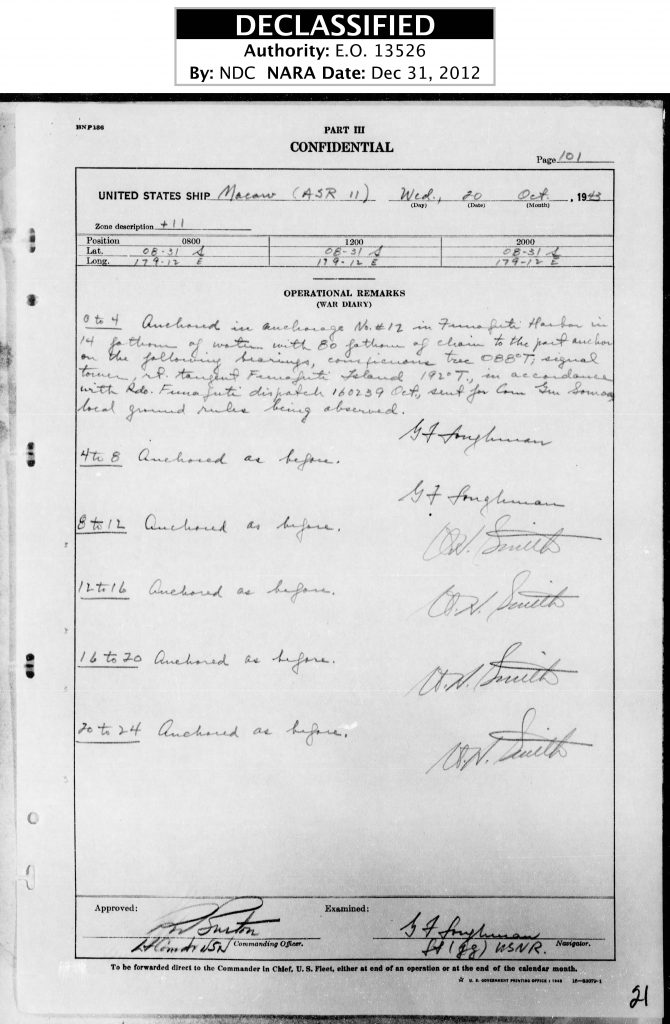 DECLASSIFIED
Authority: E.O. 13526
By: NDC NARA Date: Dec 31, 2012
BNP186
PART III
CONFIDENTIAL
Page 101
UNITED STATES SHIP Macaw (ASR 11) Wed., 20 Oct. , 1943
(Day) (Date) (Month)
Zone description +11
Position 0800 1200 2000
Lat. 08-31 S 08-31 S 08-31 S
Long. 179-12 E 179-12 E 179-12 E
OPERATIONAL REMARKS
(WAR DIARY)
0 to 4 Anchored in anchorage No. #12 in Funafuti Harbor in
14 fathoms of water with 80 fathoms of chain to the port anchor
on the following bearings, conspicuous tree 088°T, signal
tower, rt. tangent Funafuti Island 192°T., in accordance
with Rdo. Funafuti dispatch 160239 Oct, sent for Com Gen Samoa,
local ground rules being observed.
4 to 8 Anchored as before.
8 to 12 Anchored as before.
W.N. Smith
12 to 16 Anchored as before.
W.N. Smith
16 to 20 Anchored as before.
W.N. Smith
20 to 24 Anchored as before.
W.N. Smith
Approved: Examined:
Burton G F
Lt Comdr USN Commanding Officer. Lt (jg) USNR. Navigator.
To be forwarded direct to the Commander in Chief, U. S. Fleet, either at end of an operation or at the end of the calendar month.
U. S. GOVERNMENT PRINTING OFFICE : 1943 16-33079-1
21